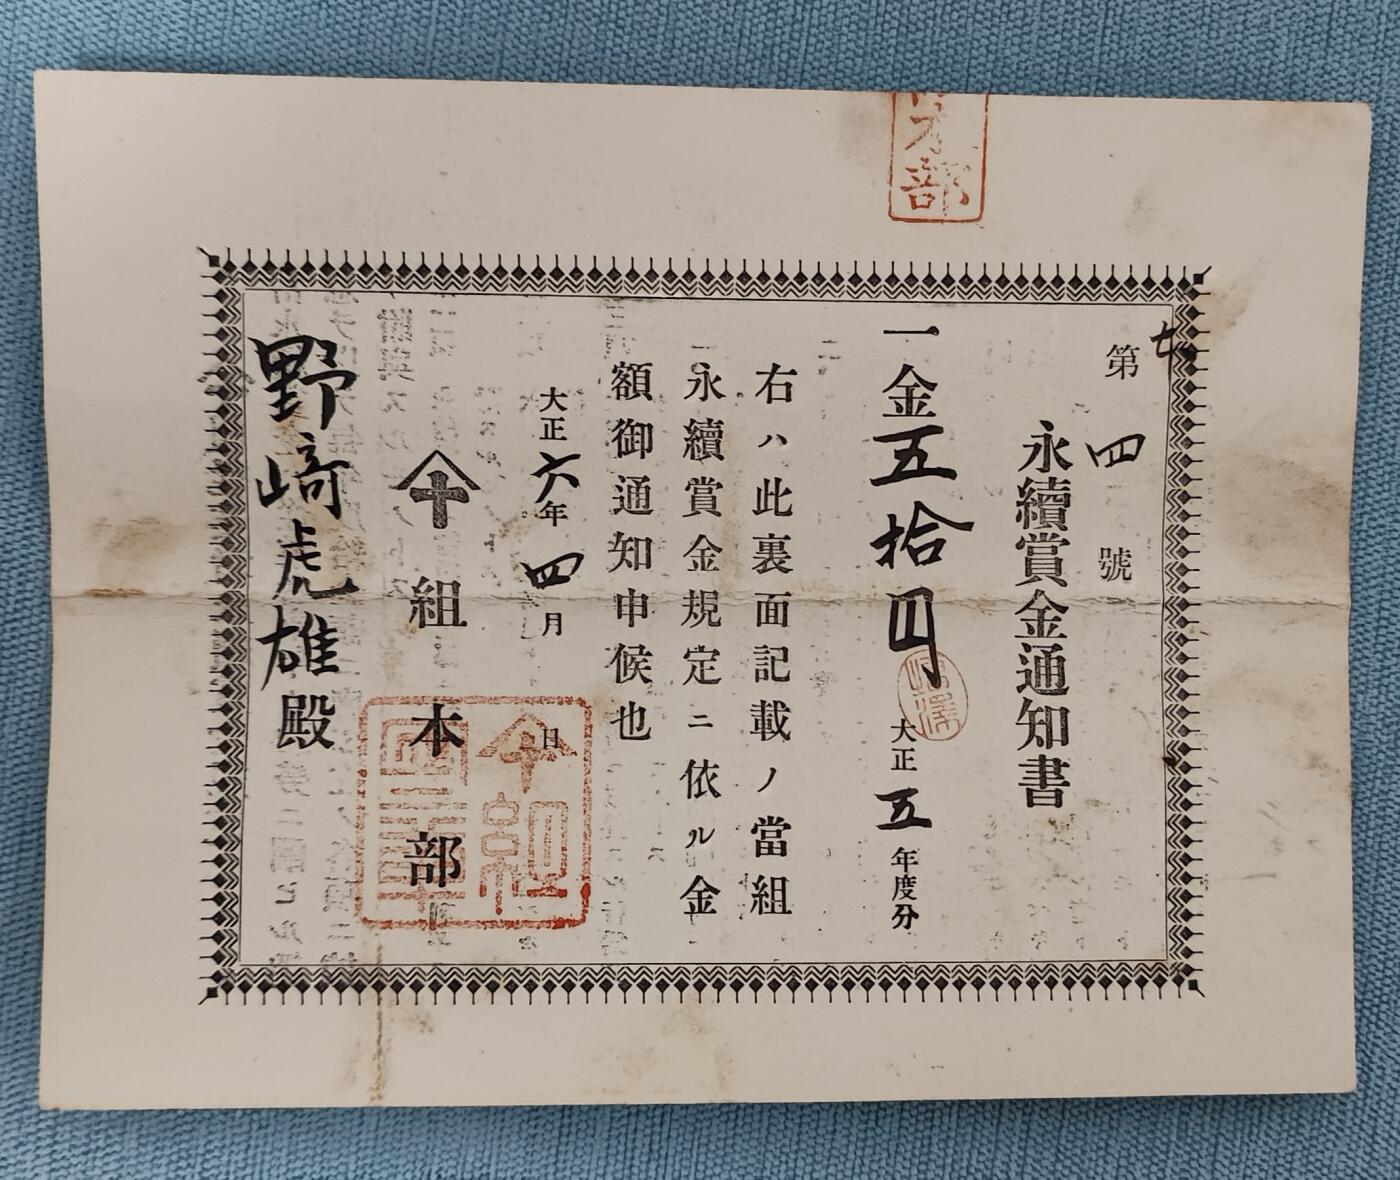 第四號
永續賞金通知書
一金五拾円 大正五年度分
右ハ此裏面記載ノ當組
永續賞金規定ニ依ル金
額御通知申候也
大正六年四月 日
組本部
野﨑虎雄殿
本部